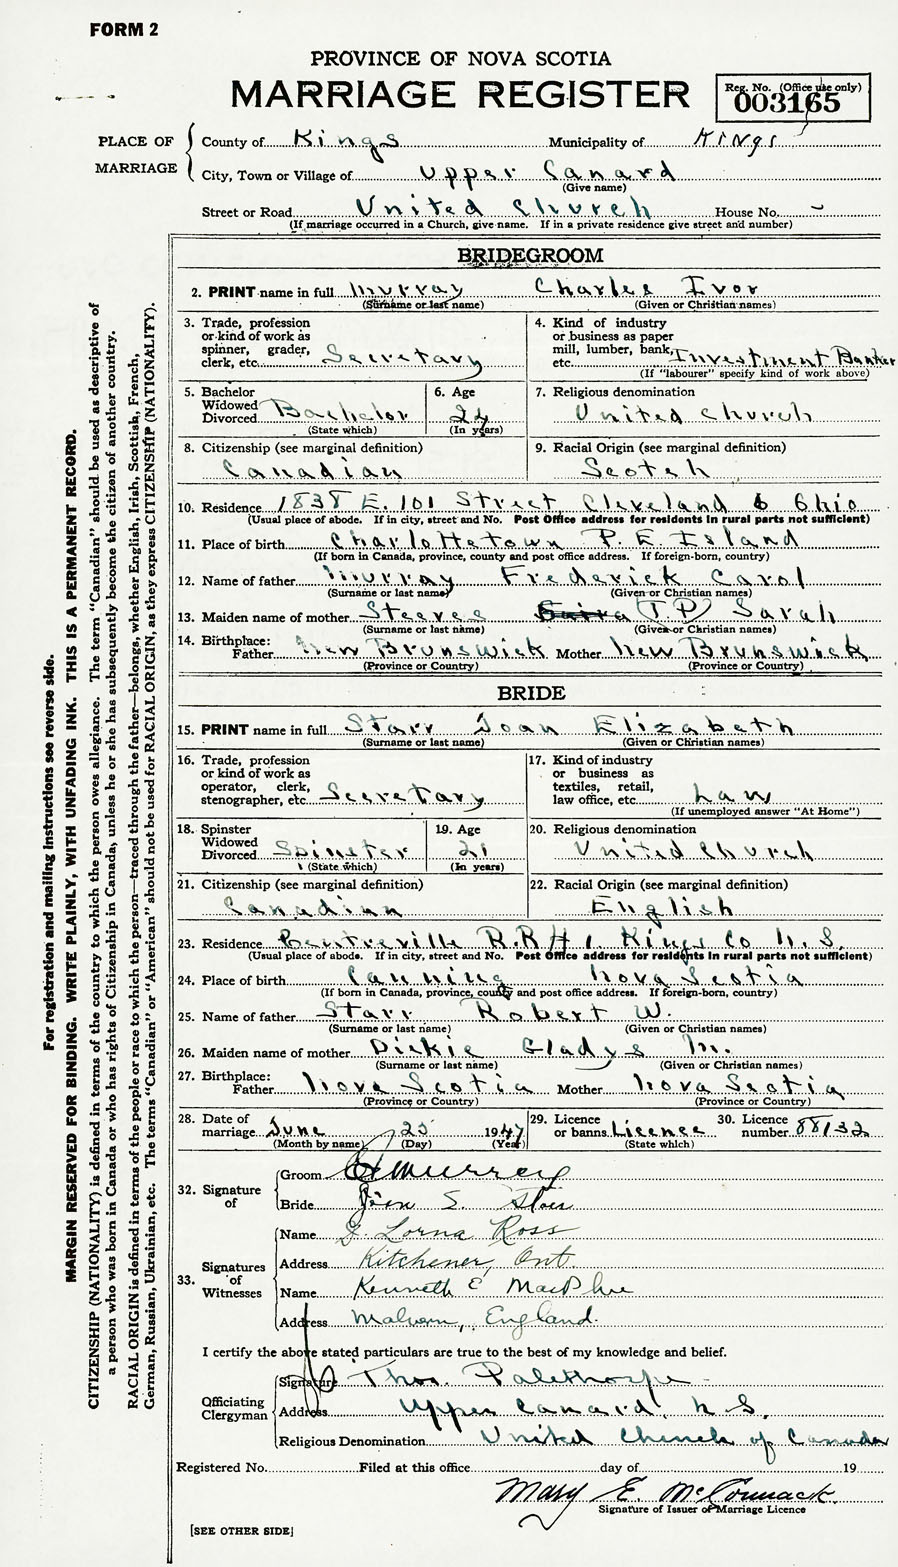 FORM 2
PROVINCE OF NOVA SCOTIA
MARRIAGE REGISTER
Reg. No. (Office use only)
003165
PLACE OF MARRIAGE
County of Kings Municipality of Kings
City, Town or Village of Upper Canard
(Give name)
Street or Road United Church House No. -
(If marriage occurred in a Church, give name. If in a private residence give street and number)
BRIDEGROOM
2. PRINT name in full Murray Charles Ivor
(Surname or last name) (Given or Christian names)
3. Trade, profession or kind of work as spinner, grader, clerk, etc. Secretary
4. Kind of industry or business as paper mill, lumber, bank, etc. Investment Banker
(If "labourer" specify kind of work above)
5. Bachelor Widowed Divorced Bachelor
(State which)
6. Age 24
(In years)
7. Religious denomination
United Church
8. Citizenship (see marginal definition)
Canadian
9. Racial Origin (see marginal definition)
Scotch
10. Residence 1838 E. 101 Street Cleveland Ohio
(Usual place of abode. If in city, street and No. Post Office address for residents in rural parts not sufficient)
11. Place of birth Charlottetown P. E. Island
(If born in Canada, province, county and post office address. If foreign-born, country)
12. Name of father Murray Frederick Carol
(Surname or last name) (Given or Christian names)
13. Maiden name of mother Steeves (T.P.) Sarah
(Surname or last name) (Given or Christian names)
14. Birthplace:
Father New Brunswick Mother New Brunswick
(Province or Country) (Province or Country)
BRIDE
15. PRINT name in full Starr Joan Elizabeth
(Surname or last name) (Given or Christian names)
16. Trade, profession or kind of work as operator, clerk, stenographer, etc. Secretary
17. Kind of industry or business as textiles, retail, law office, etc. Law
(If unemployed answer "At Home")
18. Spinster Widowed Divorced Spinster
(State which)
19. Age 21
(In years)
20. Religious denomination
United Church
21. Citizenship (see marginal definition)
Canadian
22. Racial Origin (see marginal definition)
English
23. Residence Centreville R.R # 1 Kings Co N.S.
(Usual place of abode. If in city, street and No. Post Office address for residents in rural parts not sufficient)
24. Place of birth Canning Nova Scotia
(If born in Canada, province, county and post office address. If foreign-born, country)
25. Name of father Starr Robert W.
(Surname or last name) (Given or Christian names)
26. Maiden name of mother Dickie Gladys M.
(Surname or last name) (Given or Christian names)
27. Birthplace:
Father Nova Scotia Mother Nova Scotia
(Province or Country) (Province or Country)
28. Date of marriage June 25 1947
(Month by name) (Day) (Year)
29. Licence or banns Licence
(State which)
30. Licence number 88132
32. Signature of
Groom Murray
Bride E. Starr
33. Signatures of Witnesses
Name Lorna Ross
Address Kitchener, Ont.
Name Kenneth E MacPhee
Address Malvern, England.
I certify the above stated particulars are true to the best of my knowledge and belief.
Officiating Clergyman
Signature Thos. Palethorpe
Address Upper Canard, N.S.
Religious Denomination United Church of Canada
Registered No. Filed at this office day of 19
Mary E. McCormack
Signature of Issuer of Marriage Licence
[SEE OTHER SIDE]
For registration and mailing instructions see reverse side.
MARGIN RESERVED FOR BINDING. WRITE PLAINLY, WITH UNFADING INK. THIS IS A PERMANENT RECORD.
CITIZENSHIP (NATIONALITY) is defined in terms of the country to which the person owes allegiance. The term "Canadian" should be used as descriptive of
a person who was born in Canada or who has rights of Citizenship in Canada, unless he or she has subsequently become the citizen of another country.
RACIAL ORIGIN is defined in terms of the people or race to which the person—traced through the father—belongs, whether English, Irish, Scottish, French,
German, Russian, Ukrainian, etc. The terms "Canadian" or "American" should not be used for RACIAL ORIGIN, as they express CITIZENSHIP (NATIONALITY).